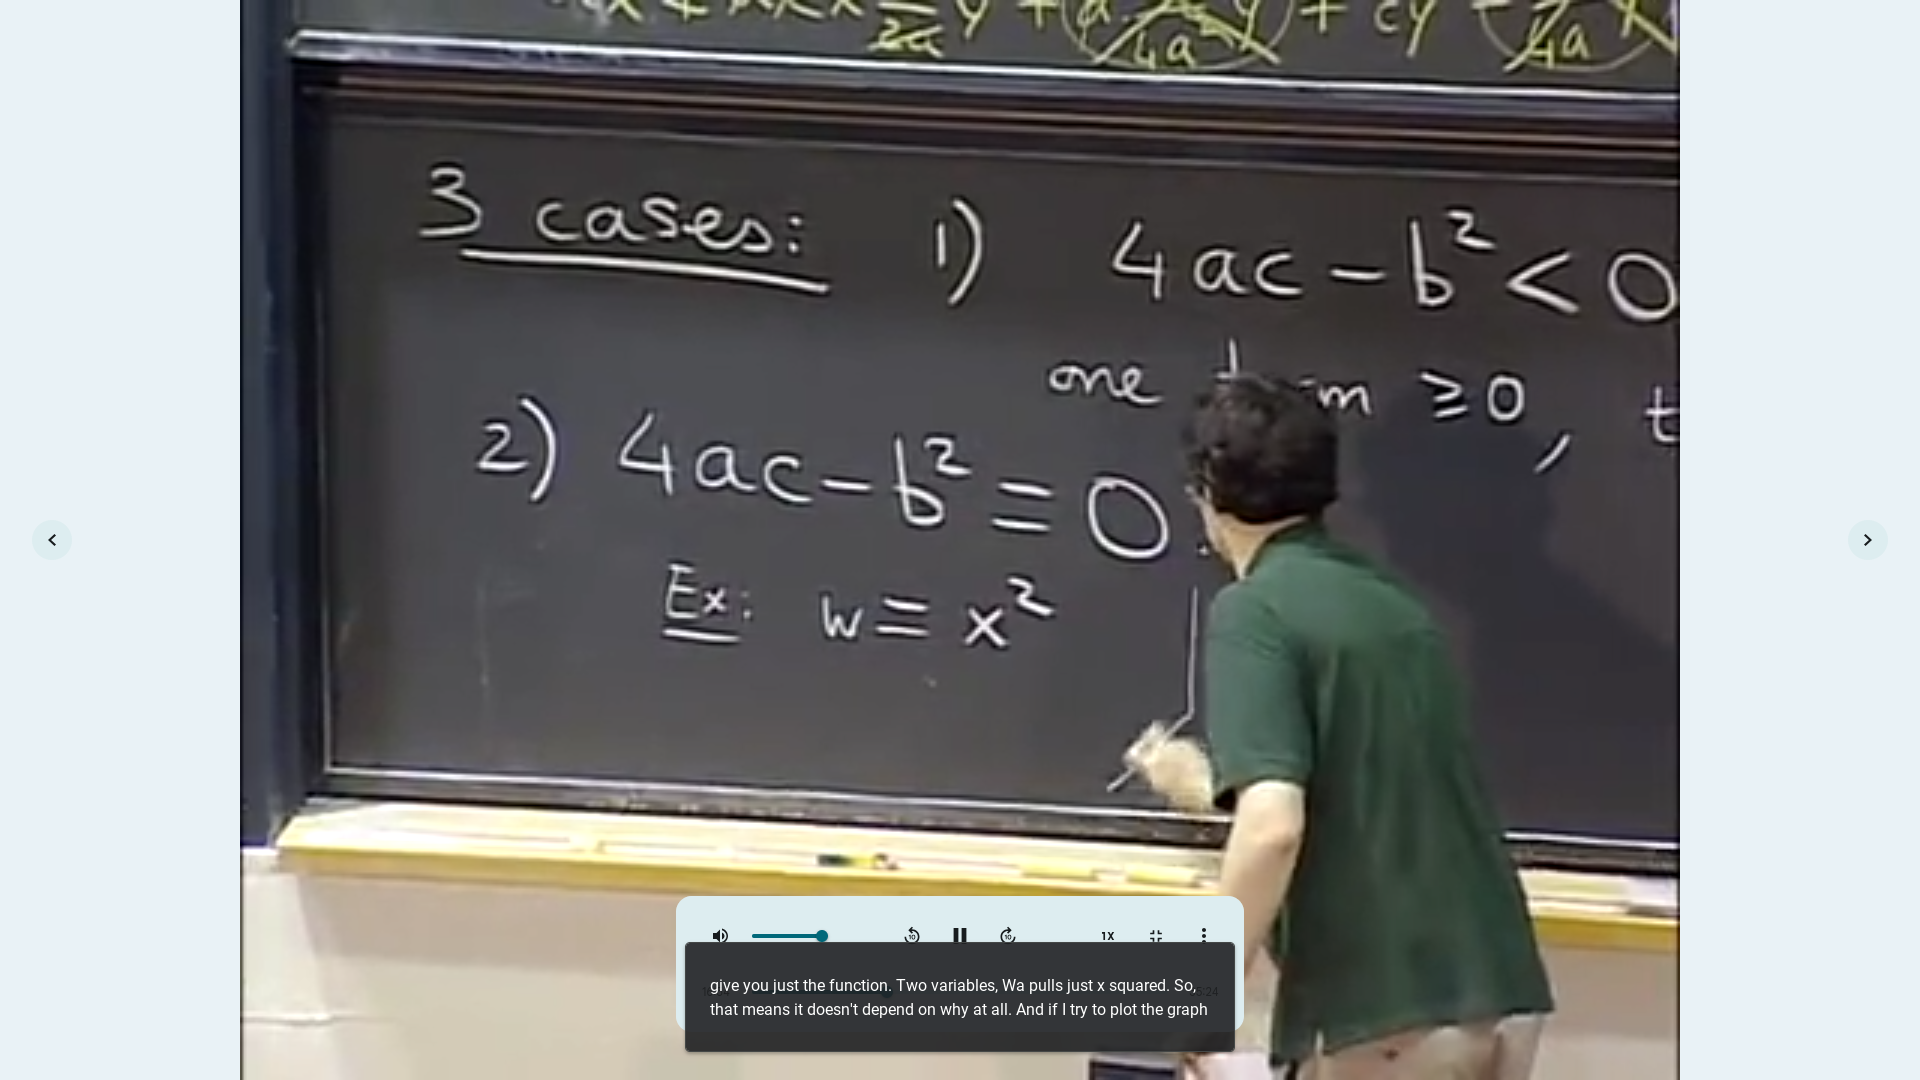 + cy
4a
3 cases: 1) 4ac-b² < 0
one ≥0,
2) 4ac-b² = 0
Ex: w = x²
10 10 1X
give you just the function. Two variables, Wa pulls just x squared. So,
that means it doesn't depend on why at all. And if I try to plot the graph